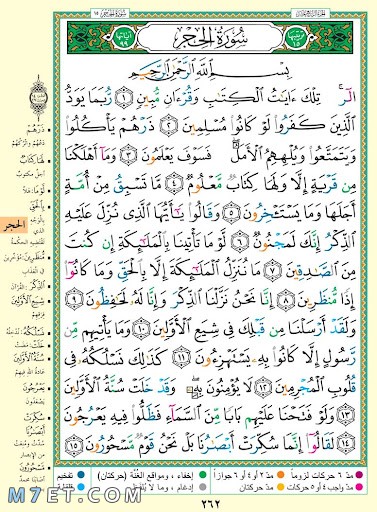 سُورَةُ الحِجر
١٥
سُورَةُ الحِجْرِ
ترتيبها ١٥
آياتها ٩٩
بِسْمِ اللَّهِ الرَّحْمَٰنِ الرَّحِيمِ
الٓر ۚ تِلْكَ ءَايَٰتُ الْكِتَٰبِ وَقُرْءَانٍ مُّبِينٍ ١ رُّبَمَا يَوَدُّ
الَّذِينَ كَفَرُوا لَوْ كَانُوا مُسْلِمِينَ ٢ ذَرْهُمْ يَأْكُلُوا
وَيَتَمَتَّعُوا وَيُلْهِهِمُ الْأَمَلُ ۖ فَسَوْفَ يَعْلَمُونَ ٣ وَمَا أَهْلَكْنَا
مِن قَرْيَةٍ إِلَّا وَلَهَا كِتَابٌ مَّعْلُومٌ ٤ مَّا تَسْبِقُ مِنْ أُمَّةٍ
أَجَلَهَا وَمَا يَسْتَـْٔخِرُونَ ٥ وَقَالُوا يَٰٓأَيُّهَا الَّذِي نُزِّلَ عَلَيْهِ
الذِّكْرُ إِنَّكَ لَمَجْنُونٌ ٦ لَّوْ مَا تَأْتِينَا بِالْمَلَٰٓئِكَةِ إِن كُنتَ
مِنَ الصَّٰدِقِينَ ٧ مَا نُنَزِّلُ الْمَلَٰٓئِكَةَ إِلَّا بِالْحَقِّ وَمَا كَانُوا
إِذًا مُّنظَرِينَ ٨ إِنَّا نَحْنُ نَزَّلْنَا الذِّكْرَ وَإِنَّا لَهُ لَحَٰفِظُونَ ٩
وَلَقَدْ أَرْسَلْنَا مِن قَبْلِكَ فِي شِيَعِ الْأَوَّلِينَ ١٠ وَمَا يَأْتِيهِم مِّن
رَّسُولٍ إِلَّا كَانُوا بِهِ يَسْتَهْزِءُونَ ١١ كَذَٰلِكَ نَسْلُكُهُ فِي
قُلُوبِ الْمُجْرِمِينَ ١٢ لَا يُؤْمِنُونَ بِهِ ۖ وَقَدْ خَلَتْ سُنَّةُ الْأَوَّلِينَ
١٣ وَلَوْ فَتَحْنَا عَلَيْهِم بَابًا مِّنَ السَّمَاءِ فَظَلُّوا فِيهِ يَعْرُجُونَ
١٤ لَقَالُوا إِنَّمَا سُكِّرَتْ أَبْصَٰرُنَا بَلْ نَحْنُ قَوْمٌ مَّسْحُورُونَ ١٥
ذَرْهُمْ
دعهم واتركهم
لها كتاب
أجل مكتوب
الحجر
منظرين
شيع الأولين
نسلكه
خلت
سنة الأولين
يعرجون
يصعدون
سكرت أبصارنا
مد ٦ حركات لزوماً
مد ٢ أو ٤ أو ٦ جوازاً
إخفاء ، ومواقع الغُنَّة (حركتان)
تفخيم
مد واجب ٤ أو ٥ حركات
مد حركتان
إدغام ، وما لا يُلفظ
قلقلة
٢٦٢
M7ET.COM